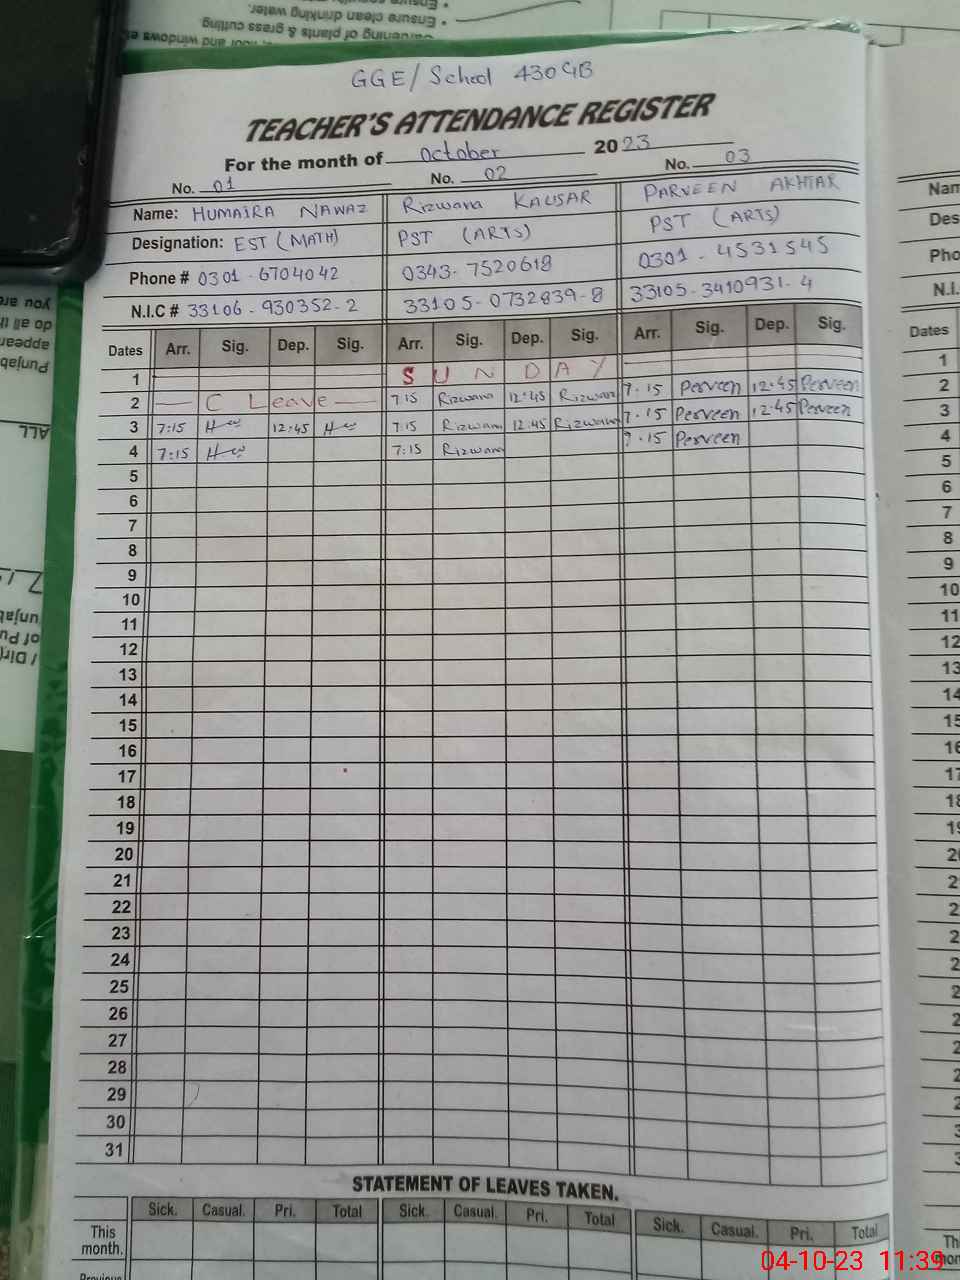 Ensure clean drinking water.
Gardening of plants & grass cutting
GGE/School 430GB
TEACHER'S ATTENDANCE REGISTER
For the month of October 2023
No. 01 No. 02 No. 03
Name: HUMAIRA NAWAZ Rizwana KAUSAR PARVEEN AKHTAR
Designation: EST (MATH) PST (ARTS) PST (ARTS)
Phone # 0301-6704042 0343-7520618 0301-4531545
N.I.C # 33106-930352-2 33105-0732839-8 33105-3410931-4
Dates Arr. Sig. Dep. Sig. Arr. Sig. Dep. Sig. Arr. Sig. Dep. Sig.
1 SUNDAY
2 C Leave 7:15 Rizwana 12:45 Rizwana 7.15 Perveen 12:45 Perveen
3 7:15 12:45 7:15 Rizwana 12:45 Rizwana 7.15 Perveen 12:45 Perveen
4 7:15 7:15 Rizwana 7.15 Perveen
5
6
7
8
9
10
11
12
13
14
15
16
17
18
19
20
21
22
23
24
25
26
27
28
29
30
31
STATEMENT OF LEAVES TAKEN.
Sick. Casual. Pri. Total Sick. Casual. Pri. Total Sick. Casual. Pri. Total
This
month.
Dates
1
2
3
4
5
6
7
8
9
10
11
12
13
04-10-23 11:39